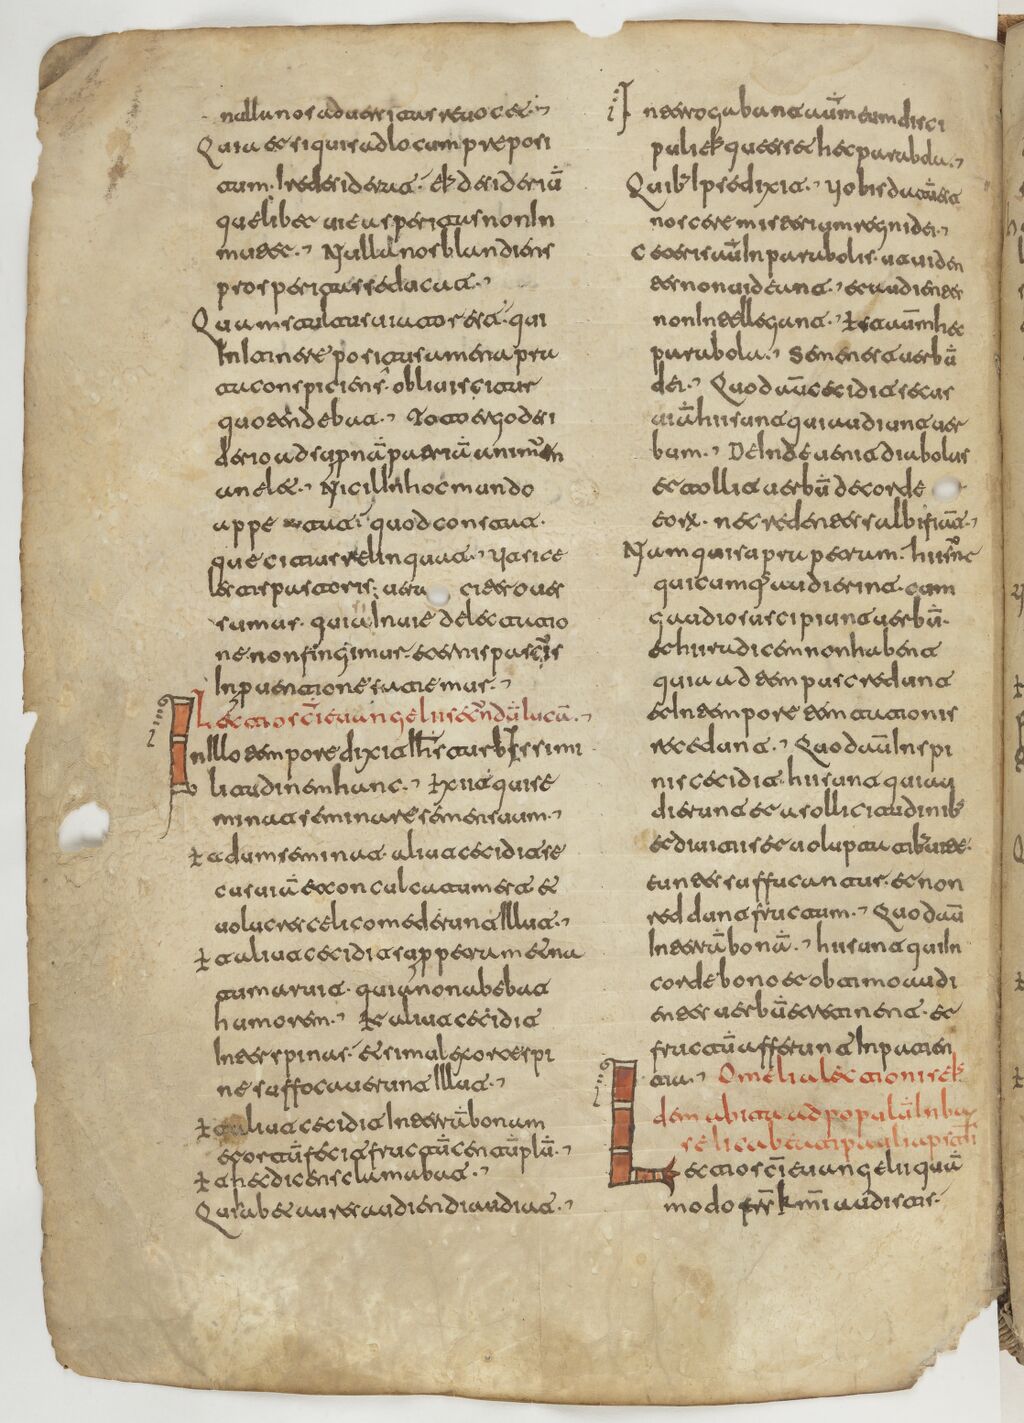 nulla nos adversitas revocet.
Quia et si quis ad locum preposi
tum. Ire desiderat. eius desideriū
quelibet vie asperitas non In
mutet. Nulla nos blandiens
prosperitas seducat.
Quam stultus viator est. qui
In Itinere posita amena pra
ta conspiciens. obliviscitur
quo tendebat. Toto ergo desi
derio ad supnā patriā animus
anelet. Nicil In hoc mundo
appe tat quod constat.
que citius relinquat. Ut si ce
lestis pastoris. vera citer oves
sumus. quia In vie delectatio
ne non fingimur. eternis pascuis
In pventione satiemur.
Lectio sci evangelii scdū lucā.
In Illo tempore dixit Ihs turbis simi
litudinem hanc. Exiit qui se
minat seminare semen suum.
Et dum seminat. aliut cecidit se
cus viā et conculcatum est et
volucres celi comederunt Illut.
Et aliut cecidit sup petram et na
tum aruit. quia non abebat
humorem. Et aliut cecidit
Inter spinas. et simul exorte spi
ne suffocaverunt Illut.
Et aliut cecidit In terrā bonam
et ortū fecit fructū centuplū.
Et hec dicens clamabat.
Qui abet aures audiendi audiat.
Interrogabant aūm eum disci
puli eius que esset hec parabola.
Quibus Ipse dixit. Vobis datū est
noscere misterium regni dei.
Ceteris aūm In parabolis. ut viden
tes non videant. et audientes
non Intellegant. Est aūm hec
parabola. Semen est verbū
dei. Quod aū cecidit secus
viā hii sunt qui audiunt ver
bum. DeInde venit diabolus
et tollit verbū de corde
eorum. ne credentes salbi fiant.
Nam qui supra petram. hii sunt
qui cumq audierint. cum
gaudio suscipiunt verbū.
et hii radicem non habent
quia ad tempus credunt
et In tempore temtationis
recedunt. Quod aū In spi
nis cecidit. hii sunt qui au
dierunt et a sollicitudinibus
et divitiis et voluptatibus vite.
euntes suffucantur. et non
reddunt fructum. Quod aū
In terrā bonā. hii sunt qui In
corde bono et obtimo audi
entes verbū retinent. et
fructū afferunt In pacien
tia. Omelia lectionis eius
dem abita ad populū In ba
selica beati pauli apstli
Lectio sci evangelii quā
modo frs kmi audistis.